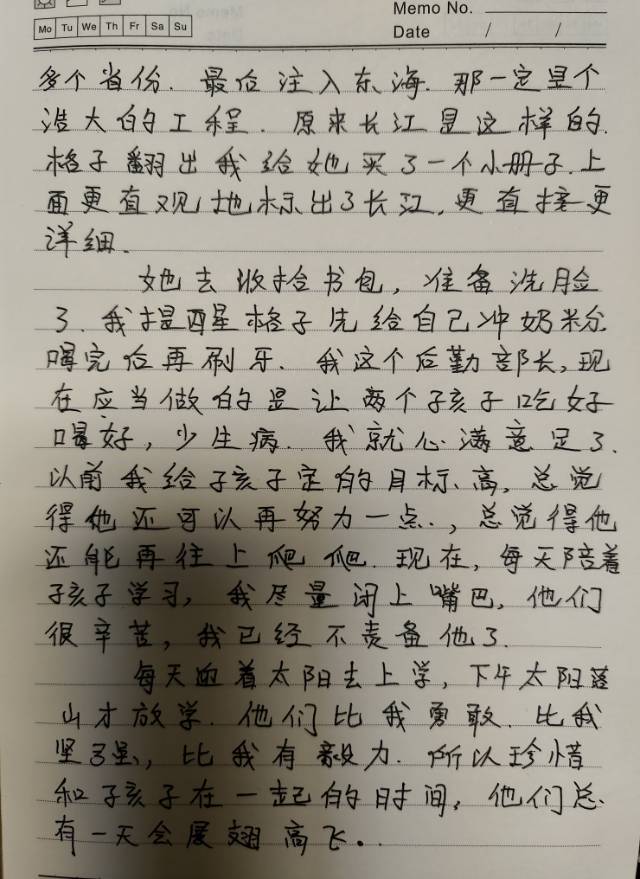 Memo No.
Mo Tu We Th Fr Sa Su
Date / /
多个省份. 最后注入东海. 那一定是个
浩大的工程. 原来长江是这样的.
格子翻出我给她买了一个小册子.上
面更直观地标出了长江, 更直接更
详细.
她去收拾书包, 准备洗脸
了. 我提醒格子先给自己冲奶粉
喝完后再刷牙. 我这个后勤部长, 现
在应当做的是让两个孩子吃好
喝好, 少生病. 我就心满意足了.
以前我给孩子定的目标高, 总觉
得他还可以再努力一点., 总觉得他
还能再往上爬爬. 现在, 每天陪着
孩子学习, 我尽量闭上嘴巴, 他们
很辛苦, 我已经不责备他了.
每天迎着太阳去上学, 下午太阳落
山才放学. 他们比我勇敢. 比我
坚强, 比我有毅力. 所以珍惜
和孩子在一起的时间, 他们总
有一天会展翅高飞..